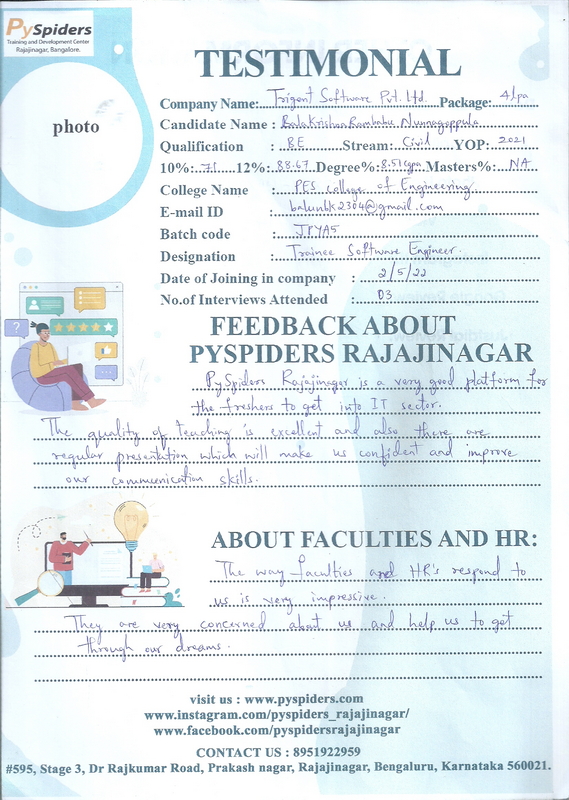 PySpiders
Training and Development Center
Rajajinagar, Bangalore.
TESTIMONIAL
photo
Company Name: Trigent Software Pvt. Ltd. Package: 4lpa
Candidate Name : BalaKrishna Rambabu Nunnagoppula
Qualification : BE Stream: Civil YOP: 2021
10%: 71 12%: 88.67 Degree%: 8.51cgpa Masters%: NA
College Name : PES college of Engineering
E-mail ID : balunbk2304@gmail.com
Batch code : JPYA5
Designation : Trainee Software Engineer.
Date of Joining in company : 2/5/22
No.of Interviews Attended : 03
FEEDBACK ABOUT
PYSPIDERS RAJAJINAGAR
PySpiders Rajajinagar is a very good platform for
the freshers to get into IT sector.
The quality of teaching is excellent and also there are
regular presentation which will make us confident and improve
our communication skills.
ABOUT FACULTIES AND HR:
The way faculties and HR's respond to
us is very impressive.
They are very concerned about us and help us to get
through our dreams.
visit us : www.pyspiders.com
www.instagram.com/pyspiders_rajajinagar/
www.facebook.com/pyspidersrajajinagar
CONTACT US : 8951922959
#595, Stage 3, Dr Rajkumar Road, Prakash nagar, Rajajinagar, Bengaluru, Karnataka 560021.